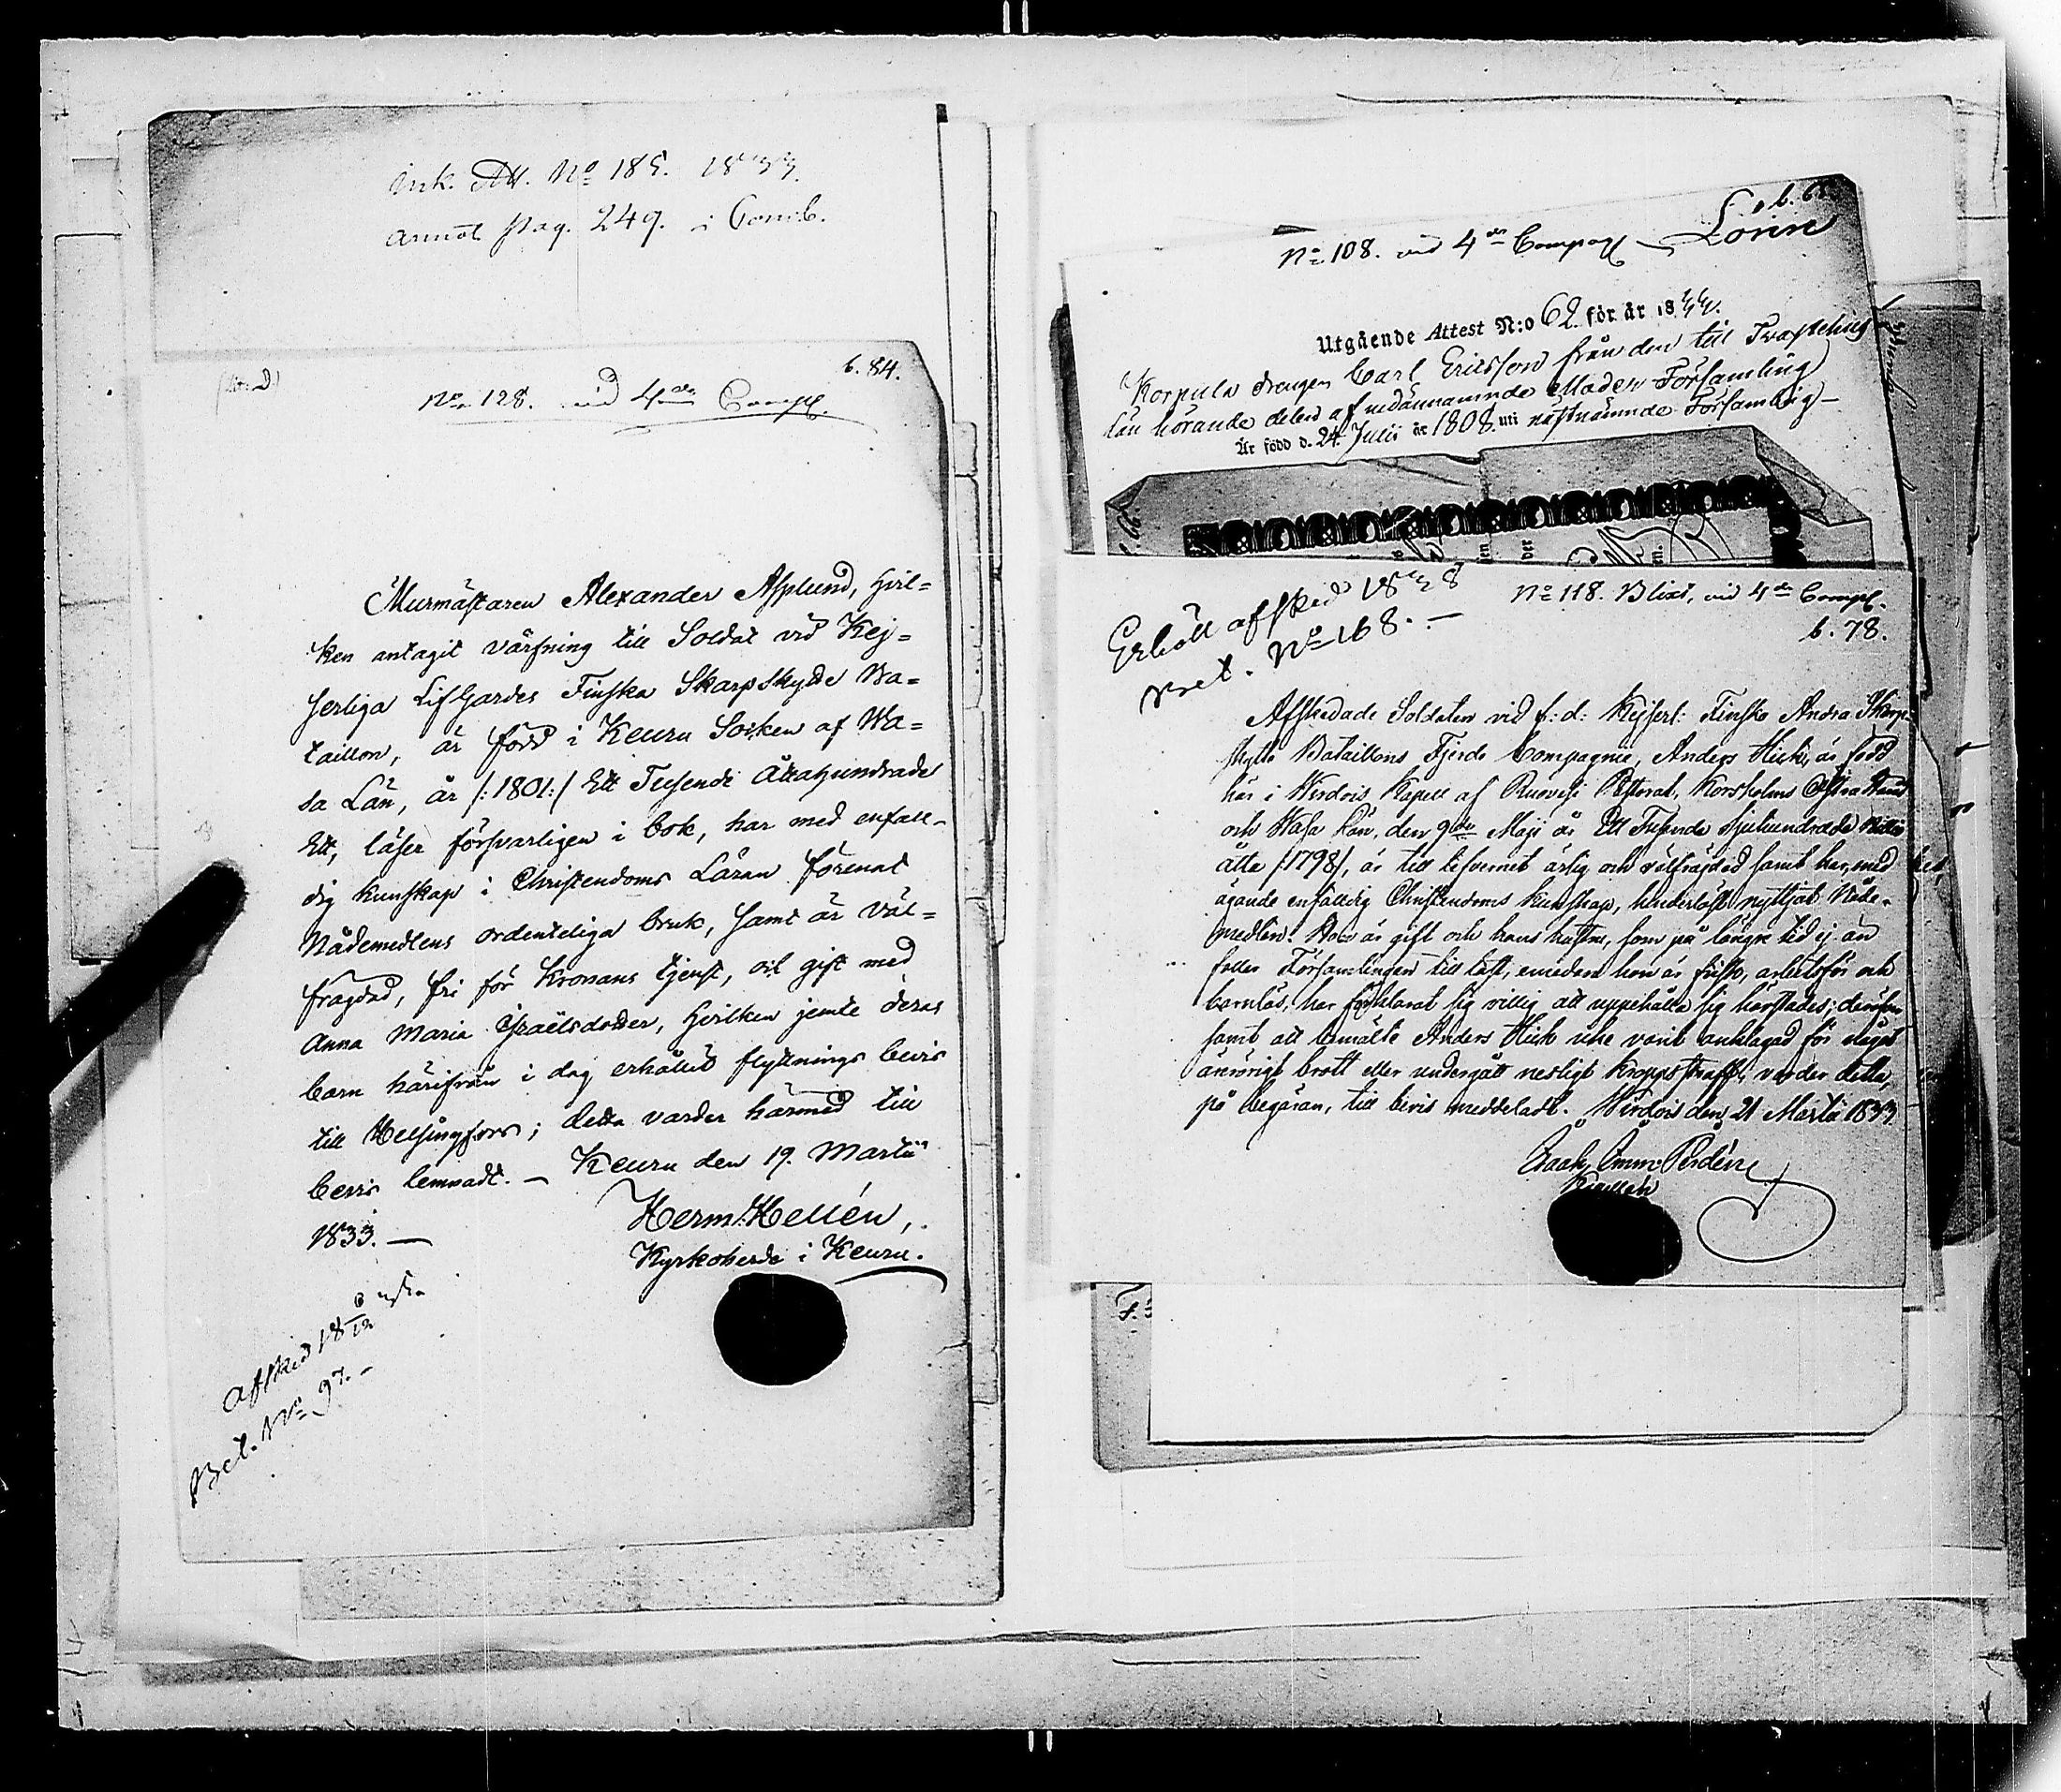 Ink. Att. No 185. 1833.
Annot pag. 249. i Comb.
b. 84.
No 128. vid 4de Comp.
Murmästaren Alexander Asplund, hvil=
ken antagit värfning till Soldat vid Kej=
serliga Lif Gardes Finska Skarpskytte Ba=
taillon, är född i Keuru Socken af Wa=
sa Län, år /:1801:/ Ett Tusende Åttahundrade
Ett, läser försvarligen i bok, har med enfall-
dig kunskap i Christendoms Läran förenat
Nådemedlens ordenteliga bruk, samt är väl=
frägdad, fri för Kronans tjenst, och gift med
Anna Maria Israëlsdotter, hvilken jemte deras
barn härifrån i dag erhållit flyttnings bevis
till Helsingfors; detta varder härmed till
bevis lemnadt. — Keuru den 19. Martii
1833. —
Herm: Hellén,
Kyrkoherde i Keuru.
Afsked 18
Bet. No 97. -
b. 68.
No 108. vid 4de Compag Lorin
Utgående Attest N:o 62 för år 1844.
Korpula drengen Carl Ericsson från den till Tavastehus
län hörande delen af nedannämnde Församling
Är född d. 24. Julii år 1808. uti nästnämnde Församling -
Erhöll afsked 1838
Bet. No 168. —
No 118. Blixt, vid 4de Comp.
b. 78.
Afskedade Soldaten vid f: d: Kejserl: Finska Andra Skarp-
skytte Bataillons Fjerde Compagnie, Anders Hick, är född
här i Wirdois Kapell af Ruovesi Pastorat, Korsholms Östra Härad
och Wasa Län, den 9de Maji år Ett Tusende Sjuhundrade Nittio
åtta /:1798/, är till lefvernet ärlig och välfrägdad samt har, med
ägande enfaldig Christendoms kunskap, hinderlöst nyttjat Nåde-
medlen. Han är gift och hans hustru, som på längre tid ej än
faller Församlingen till last, emedan hon är frisk, arbetsför och
barnlös, har förklarat sig villig att uppehålla sig härstädes; derföre
samt att bemälte Anders Hick icke varit anklagad för något
ärerörigt brott eller undergått nesligt kroppsstraff, varder detta,
på begäran, till bevis meddeladt. Wirdois den 21 Martii 1833.
Isaak Imm: Perdén